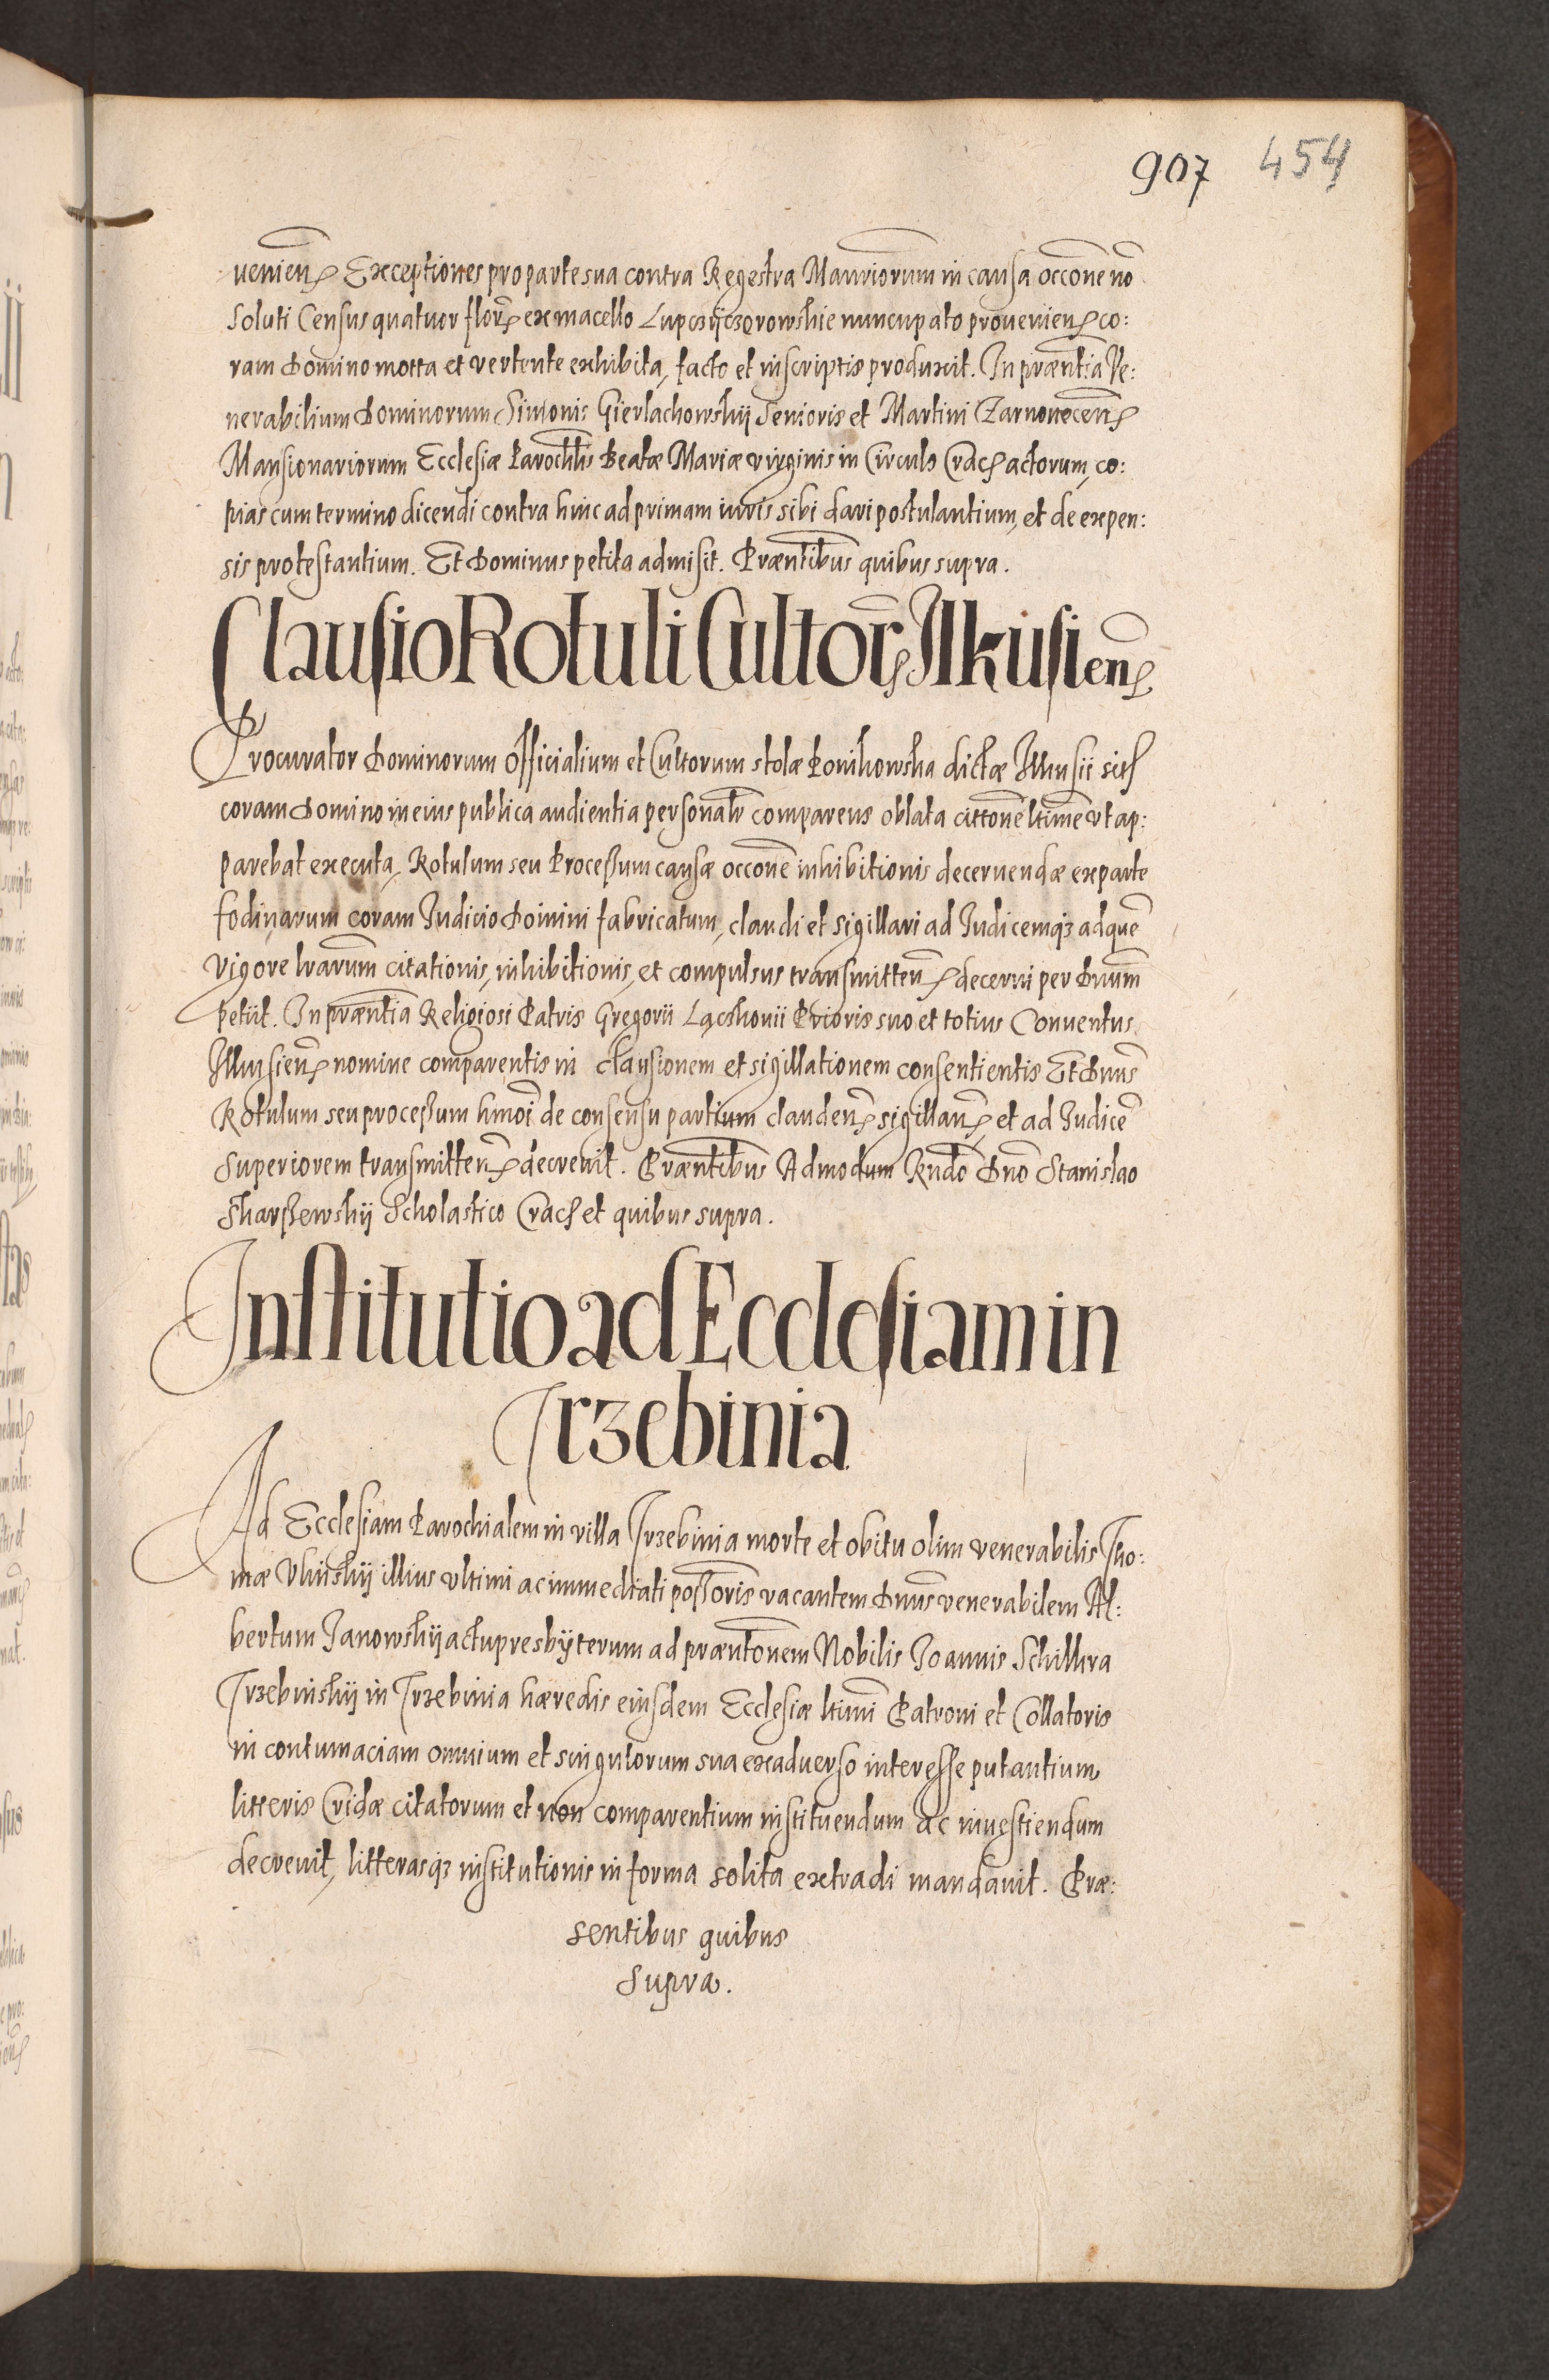 907 454
uenien̄ Exceptiones pro parte sua contra Regestra Man̄riorum in causa occōne nō
soluti Census quatuor flor̄ ex macello nuncupato prouenien̄ co:
ram Domino mota et vertente exhibita, facto et in scriptis produxit. In præn̄tia Ve:
nerabilium Dominorum Simonis Gierlachowskij Senioris et Martini Zarnouecen̄
Mansionariorum Ecclesiæ Parochl̄is Beatæ Mariæ virginis in Circulo Crac̄ actorum, co:
pias cum termino dicendi contra hinc ad primam iuris sibi dari postulantium, et de expen:
sis protestantium. Et Dominus petita admisit. Præn̄tibus quibus supra.
Clausio Rotuli Cultor̄ Ilkusien̄
Procurator Dominorum Officialium et Cultorum stolæ Ponikowska dictæ Ilkusii sit̄
coram Domino in eius publica audientia personal̄r comparens oblata cittōne l̄time vt ap:
parebat executa, Rotulum seu Processum causæ occōne inhibitionis decernendæ ex parte
fodinarum coram Iudicio Domini fabricatum, claudi et sigillari ad Iudicemqȝ ad quē
vigore l̄rarum citationis, inhibitionis, et compulsus transmitten̄ decerni per Dn̄um
petiit. In præn̄tia Religiosi Patris Gregorii Prioris suo et totius Conuentus
Ilkusien̄ nomine comparentis in clausionem et sigillationem consentientis Et Dn̄us
Rotulum seu processum hmōi de consensu partium clauden̄ sigillan̄ et ad Iudicē
Superiorem transmitten̄ decreuit. Præn̄tibus Admodum Rn̄do Dn̄o Stanislao
Skarszewskij Scholastico Crac̄ et quibus supra.
Institutio ad Ecclesiam in
Trzebinia
Ad Ecclesiam Parochialem in villa Trzebinia morte et obitu olim venerabilis Tho:
mæ illius vltimi ac immediati possōris vacantem Dn̄us venerabilem Al:
bertum Janowskij actu presbyterum ad præntōnem Nobilis Joannis Schillira
Trzebinskij in Trzebinia hæredis eiusdem Ecclesiæ l̄timi Patroni et Collatoris
in contumaciam omnium et singulorum sua ex aduerso interesse putantium
litteris Cridæ citatorum et non comparentium instituendum ac inuestiendum
decreuit, litterasqȝ institutionis in forma solita extradi mandauit. Præ:
sentibus quibus
supra.